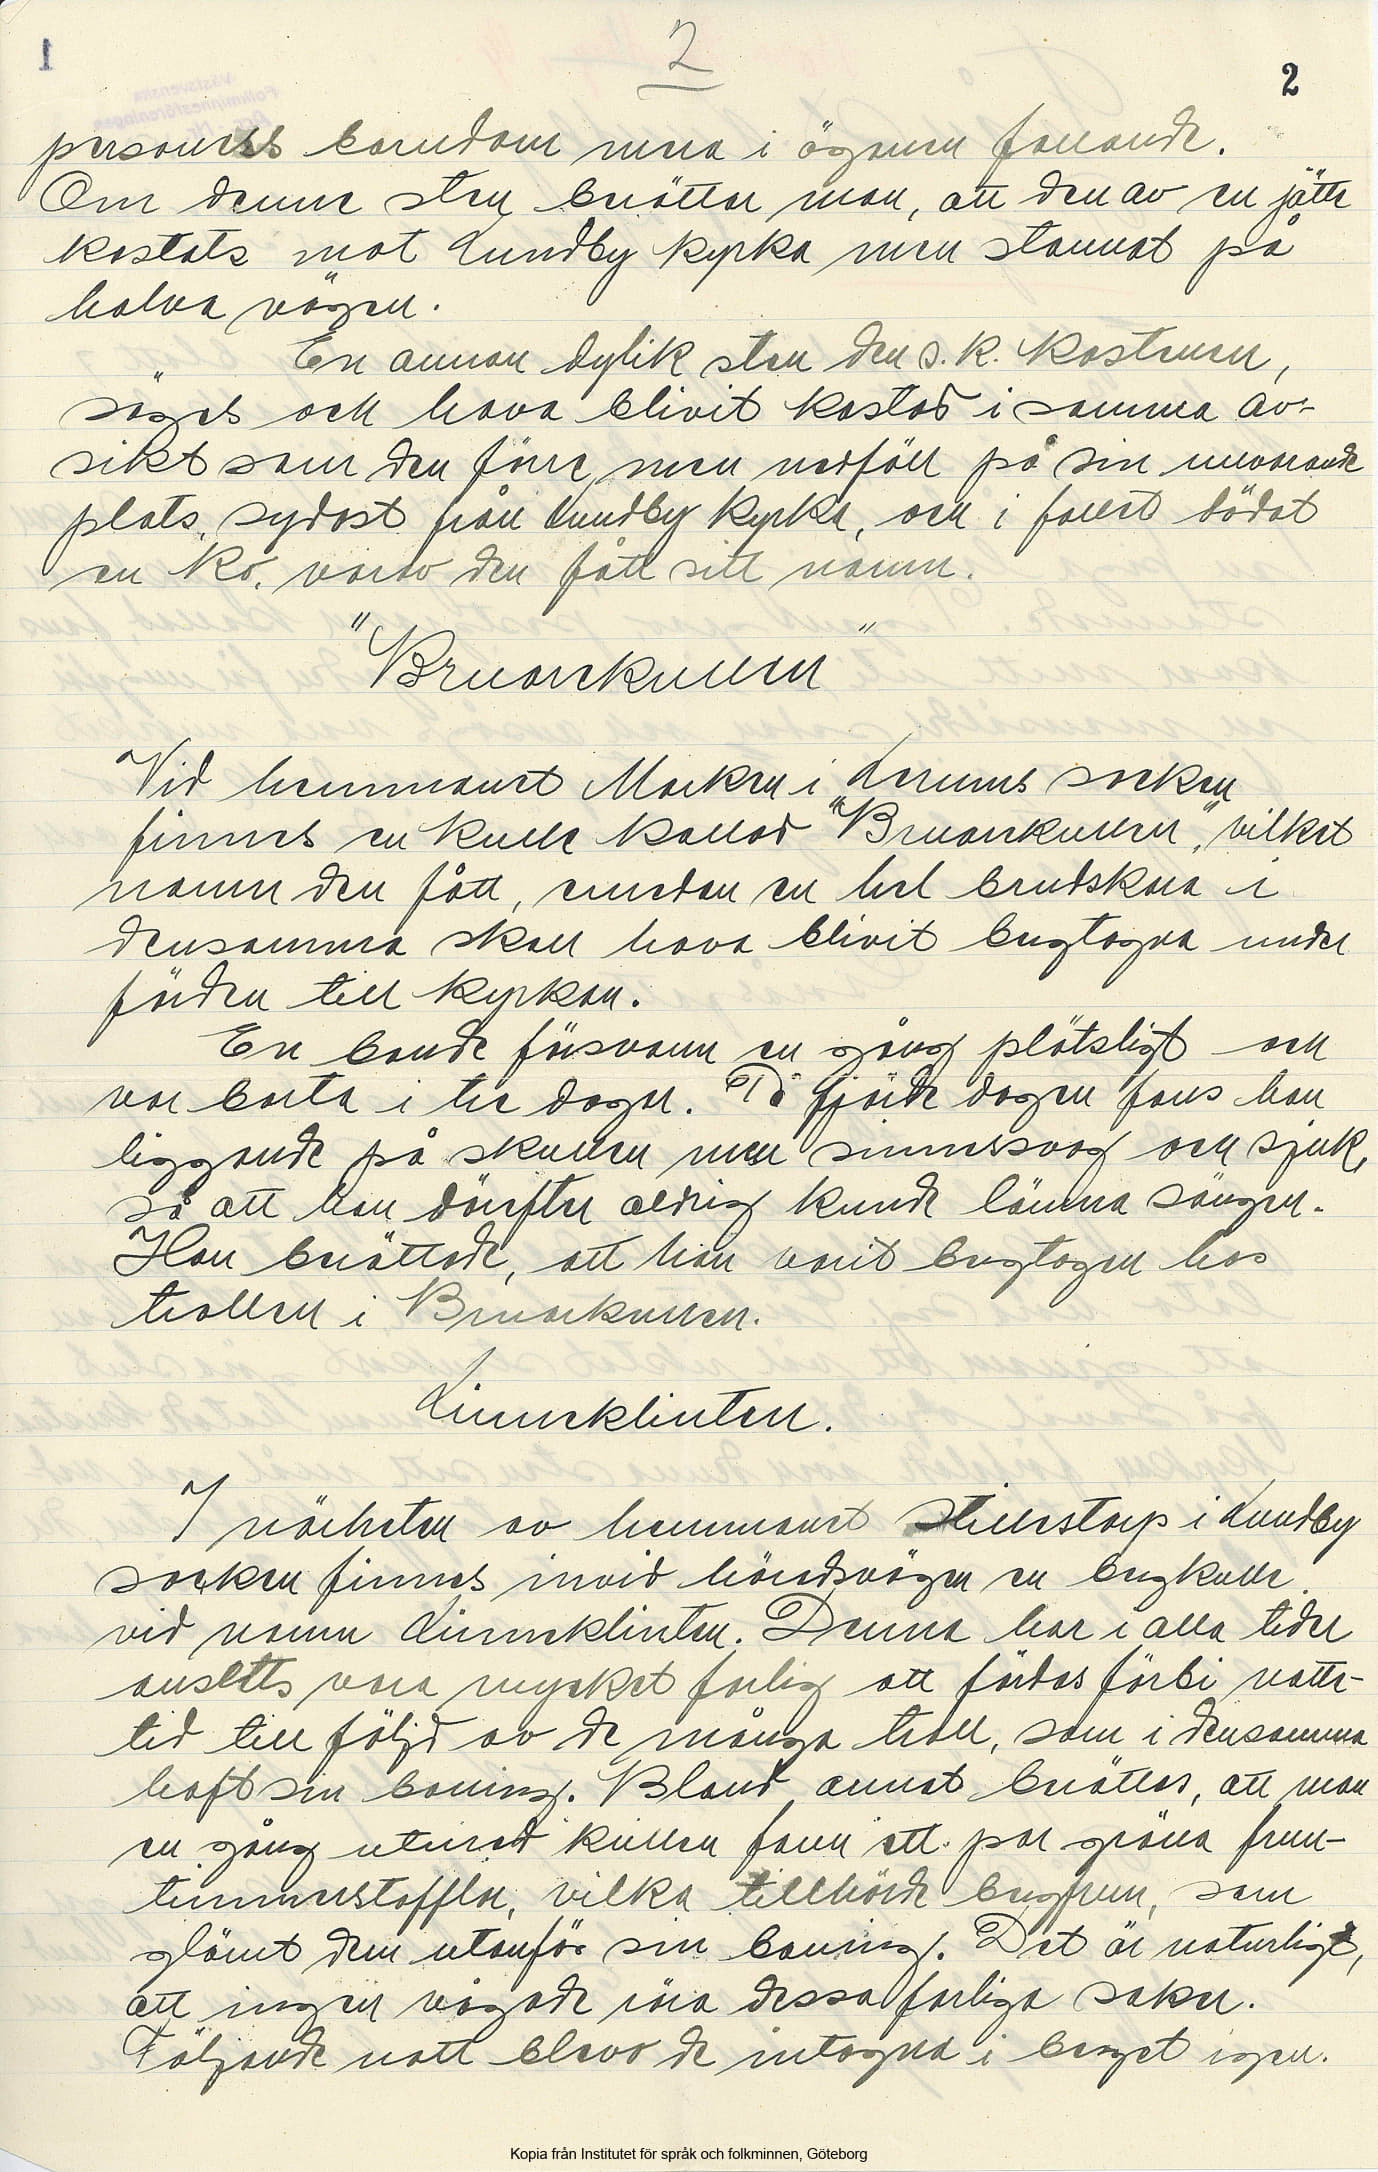 2
2
personers barndom mera i ögonen fallande.
Om denne sten berättar man, att den av en jätte
kastats mot Lundby kyrka men stannat på
halva vägen.
En annan dylik sten den s.k. Kostenen,
säges ock hava blivit kastad i samma av-
sikt som den förre, men nedföll på sin nuvarande
plats, sydost från Lundby kyrka, och i fallet dödat
en ko, varav den fått sitt namn.
"Bruarekullen"
Vid hemmanet Marken i Lerums socken
finnes en kulle kallad "Bruarekullen", vilket
namn den fått, emedan en hel brudskara i
densamma skall hava blivit bergtagna under
färden till kyrkan.
En bonde försvann en gång plötsligt och
var borta i tre dagar. På fjärde dagen fans han
liggande på skullen men sinnessvag och sjuk,
så att han därefter aldrig kunde lämna sängen.
Han berättade, att han varit bergtagen hos
trollen i Bruarekullen.
Linneklinten.
I närheten av hemmanet Stillestorp i Lundby
socken finnes invid häradsvägen en bergkulle
vid namn Linneklinten. Denna har i alla tider
ansetts vara mycket farlig att färdas förbi natte-
tid till följd av de många troll, som i densamma
haft sin boning. Bland annat berättas, att man
en gång utmed kullen fann ett par gröna frun-
timmerstofflor, vilka tillhörde bergfrun, som
glömt dem utanför sin boning. Det är naturligt,
att ingen vågade röra dessa farliga saker.
Följande natt blevo de intagna i berget igen.
Kopia från Institutet för språk och folkminnen, Göteborg